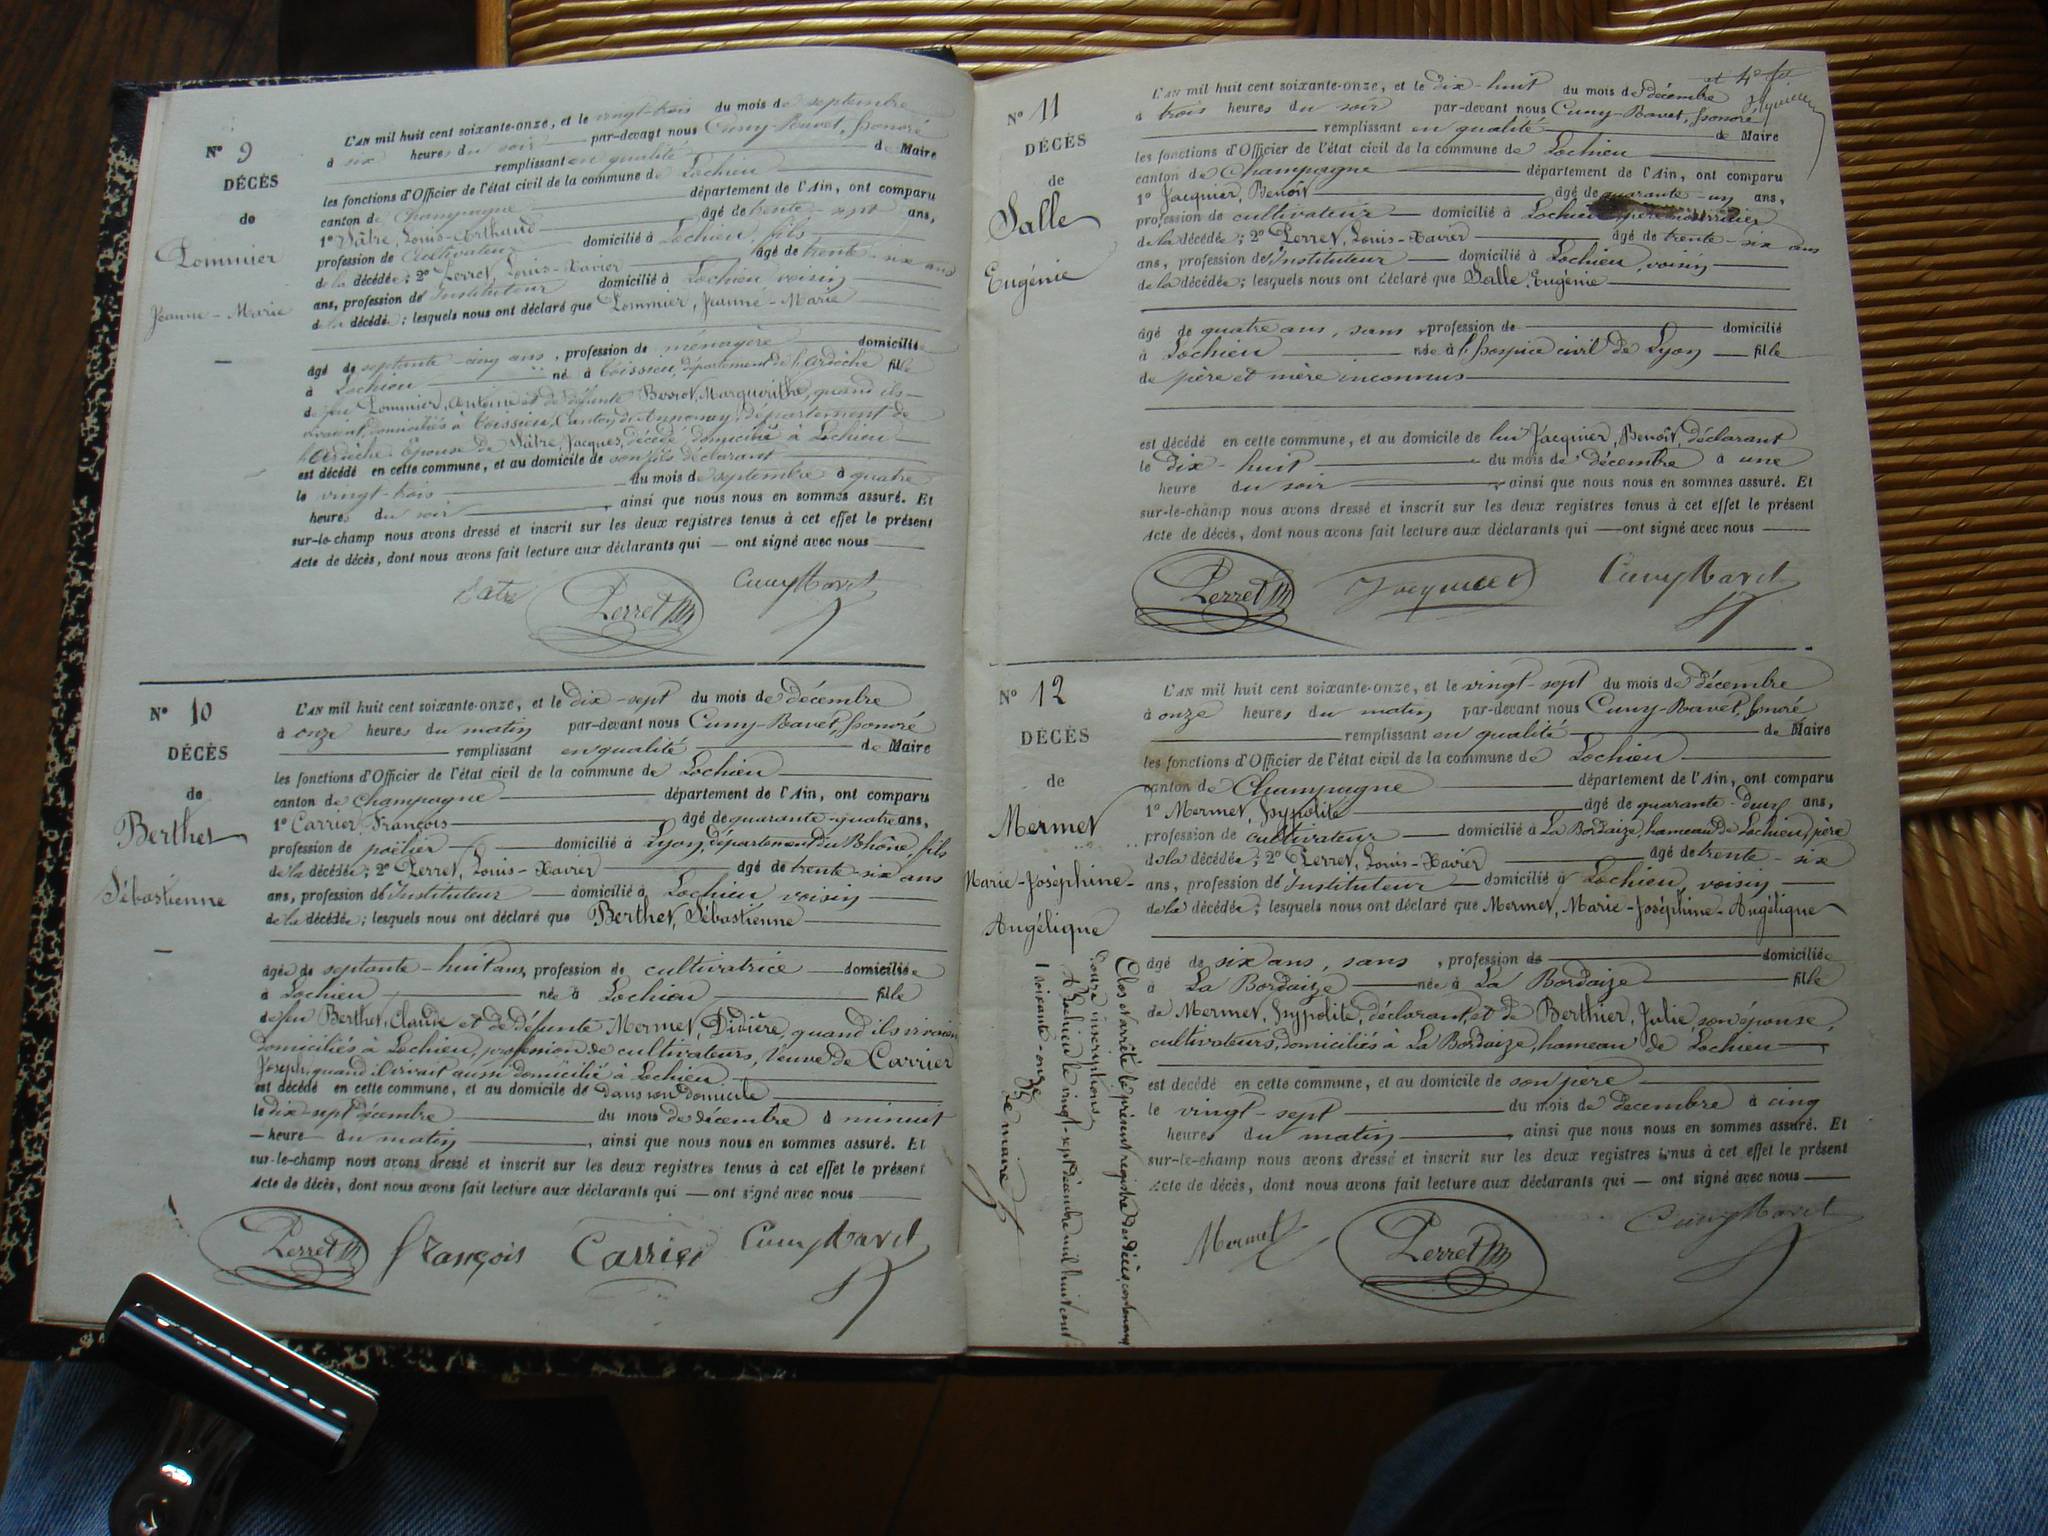 N° 9
DÉCÈS
de
Pommier
Jeanne-Marie
L'AN mil huit cent soixante-onze, et le vingt-trois du mois de septembre
à six heures du soir par-devant nous Cuny-Ravet, honoré
remplissant en qualité de Maire
les fonctions d'Officier de l'état civil de la commune de Lochieu
canton de Champagne département de l'Ain, ont comparu
1° Pâtre, Louis-Arthaud âgé de trente-sept ans,
profession de Cultivateur domicilié à Lochieu, fils
de la décédée; 2° Perret, Louis-Xavier âgé de trente-six ans
ans, profession de Instituteur domicilié à Lochieu voisin
de la décédée; lesquels nous ont déclaré que Pommier, Jeanne-Marie
âgé de septante-cinq ans, profession de ménagère domicilié
à Lochieu né à département de l'Ardèche fille
de feu Pommier, Antoine et de défunte Marguerithe, quand ils
vivaient, domiciliés à Canton d'Annonay, département de
l'Ardèche. Epouse de Pâtre, Jacques, décédé, domicilié à Lochieu
est décédé en cette commune, et au domicile de son fils déclarant
le vingt-trois du mois de septembre à quatre
heures du soir, ainsi que nous nous en sommes assuré. Et
sur-le-champ nous avons dressé et inscrit sur les deux registres tenus à cet effet le présent
Acte de décès, dont nous avons fait lecture aux déclarants qui — ont signé avec nous
Perret CunyRavet
N° 10
DÉCÈS
de
Berthet
Sébastienne
L'AN mil huit cent soixante-onze, et le dix-sept du mois de décembre
à onze heures du matin par-devant nous Cuny-Ravet, honoré
remplissant en qualité de Maire
les fonctions d'Officier de l'état civil de la commune de Lochieu
canton de Champagne département de l'Ain, ont comparu
1° Carrier, François âgé de quarante-quatre ans,
profession de poëlier domicilié à Lyon, département du Rhône, fils
de la décédée; 2° Perret, Louis-Xavier âgé de trente-six ans
ans, profession de Instituteur domicilié à Lochieu voisin
de la décédée; lesquels nous ont déclaré que Berthet, Sébastienne
âgée de septante-huit ans, profession de cultivatrice domiciliée
à Lochieu née à Lochieu fille
de feu Berthet, Claude et de défunte Mermet, Divière, quand ils vivaient
domiciliés à Lochieu, profession de cultivateurs, Veuve de Carrier
Joseph, quand il vivait aussi domicilié à Lochieu
est décédé en cette commune, et au domicile de dans son domicile
le dix-sept décembre du mois de décembre à minuit
heure du matin, ainsi que nous nous en sommes assuré. Et
sur-le-champ nous avons dressé et inscrit sur les deux registres tenus à cet effet le présent
Acte de décès, dont nous avons fait lecture aux déclarants qui — ont signé avec nous
Perret François Carrier CunyRavet
N° 11
DÉCÈS
de
Salle
Eugénie
L'AN mil huit cent soixante-onze, et le dix-huit du mois de décembre
à trois heures du soir par-devant nous Cuny-Ravet, honoré
remplissant en qualité de Maire
les fonctions d'Officier de l'état civil de la commune de Lochieu
canton de Champagne département de l'Ain, ont comparu
1° Jacquier, Benoît âgé de quarante-un ans,
profession de cultivateur domicilié à Lochieu, père nourricier
de la décédée; 2° Perret, Louis-Xavier âgé de trente-six ans
ans, profession de Instituteur domicilié à Lochieu, voisin
de la décédée; lesquels nous ont déclaré que Salle, Eugénie
âgé de quatre ans, sans profession de domicilié
à Lochieu née à l'hospice civil de Lyon fille
de père et mère inconnus
est décédé en cette commune, et au domicile de lui Jacquier, Benoît, déclarant
le dix-huit du mois de décembre à une
heure du soir, ainsi que nous nous en sommes assuré. Et
sur-le-champ nous avons dressé et inscrit sur les deux registres tenus à cet effet le présent
Acte de décès, dont nous avons fait lecture aux déclarants qui — ont signé avec nous
Perret Jacquier CunyRavet
N° 12
DÉCÈS
de
Mermet
Marie-Joséphine-
Angélique
L'AN mil huit cent soixante-onze, et le vingt-sept du mois de décembre
à onze heures du matin par-devant nous Cuny-Ravet, honoré
remplissant en qualité de Maire
les fonctions d'Officier de l'état civil de la commune de Lochieu
canton de Champagne département de l'Ain, ont comparu
1° Mermet, hyppolite âgé de quarante-deux ans,
profession de cultivateur domicilié à La Bordaize, hameau de Lochieu, père
de la décédée; 2° Perret, Louis-Xavier âgé de trente-six
ans, profession de Instituteur domicilié à Lochieu, voisin
de la décédée; lesquels nous ont déclaré que Mermet, Marie-Joséphine-Angélique
âgé de six ans, sans, profession de domiciliée
à La Bordaize née à La Bordaize fille
de Mermet, hyppolite, déclarant, et de Berthier, Julie, son épouse,
cultivateurs, domiciliés à La Bordaize, hameau de Lochieu
est décédé en cette commune, et au domicile de son père
le vingt-sept du mois de décembre à cinq
heures du matin, ainsi que nous nous en sommes assuré. Et
sur-le-champ nous avons dressé et inscrit sur les deux registres tenus à cet effet le présent
Acte de décès, dont nous avons fait lecture aux déclarants qui — ont signé avec nous
Mermet Perret CunyRavet
Clos et arrêté le présent registre des décès, contenant
douze inscriptions,
A Lochieu le vingt-sept décembre mil huit cent
soixante-onze
Le maire